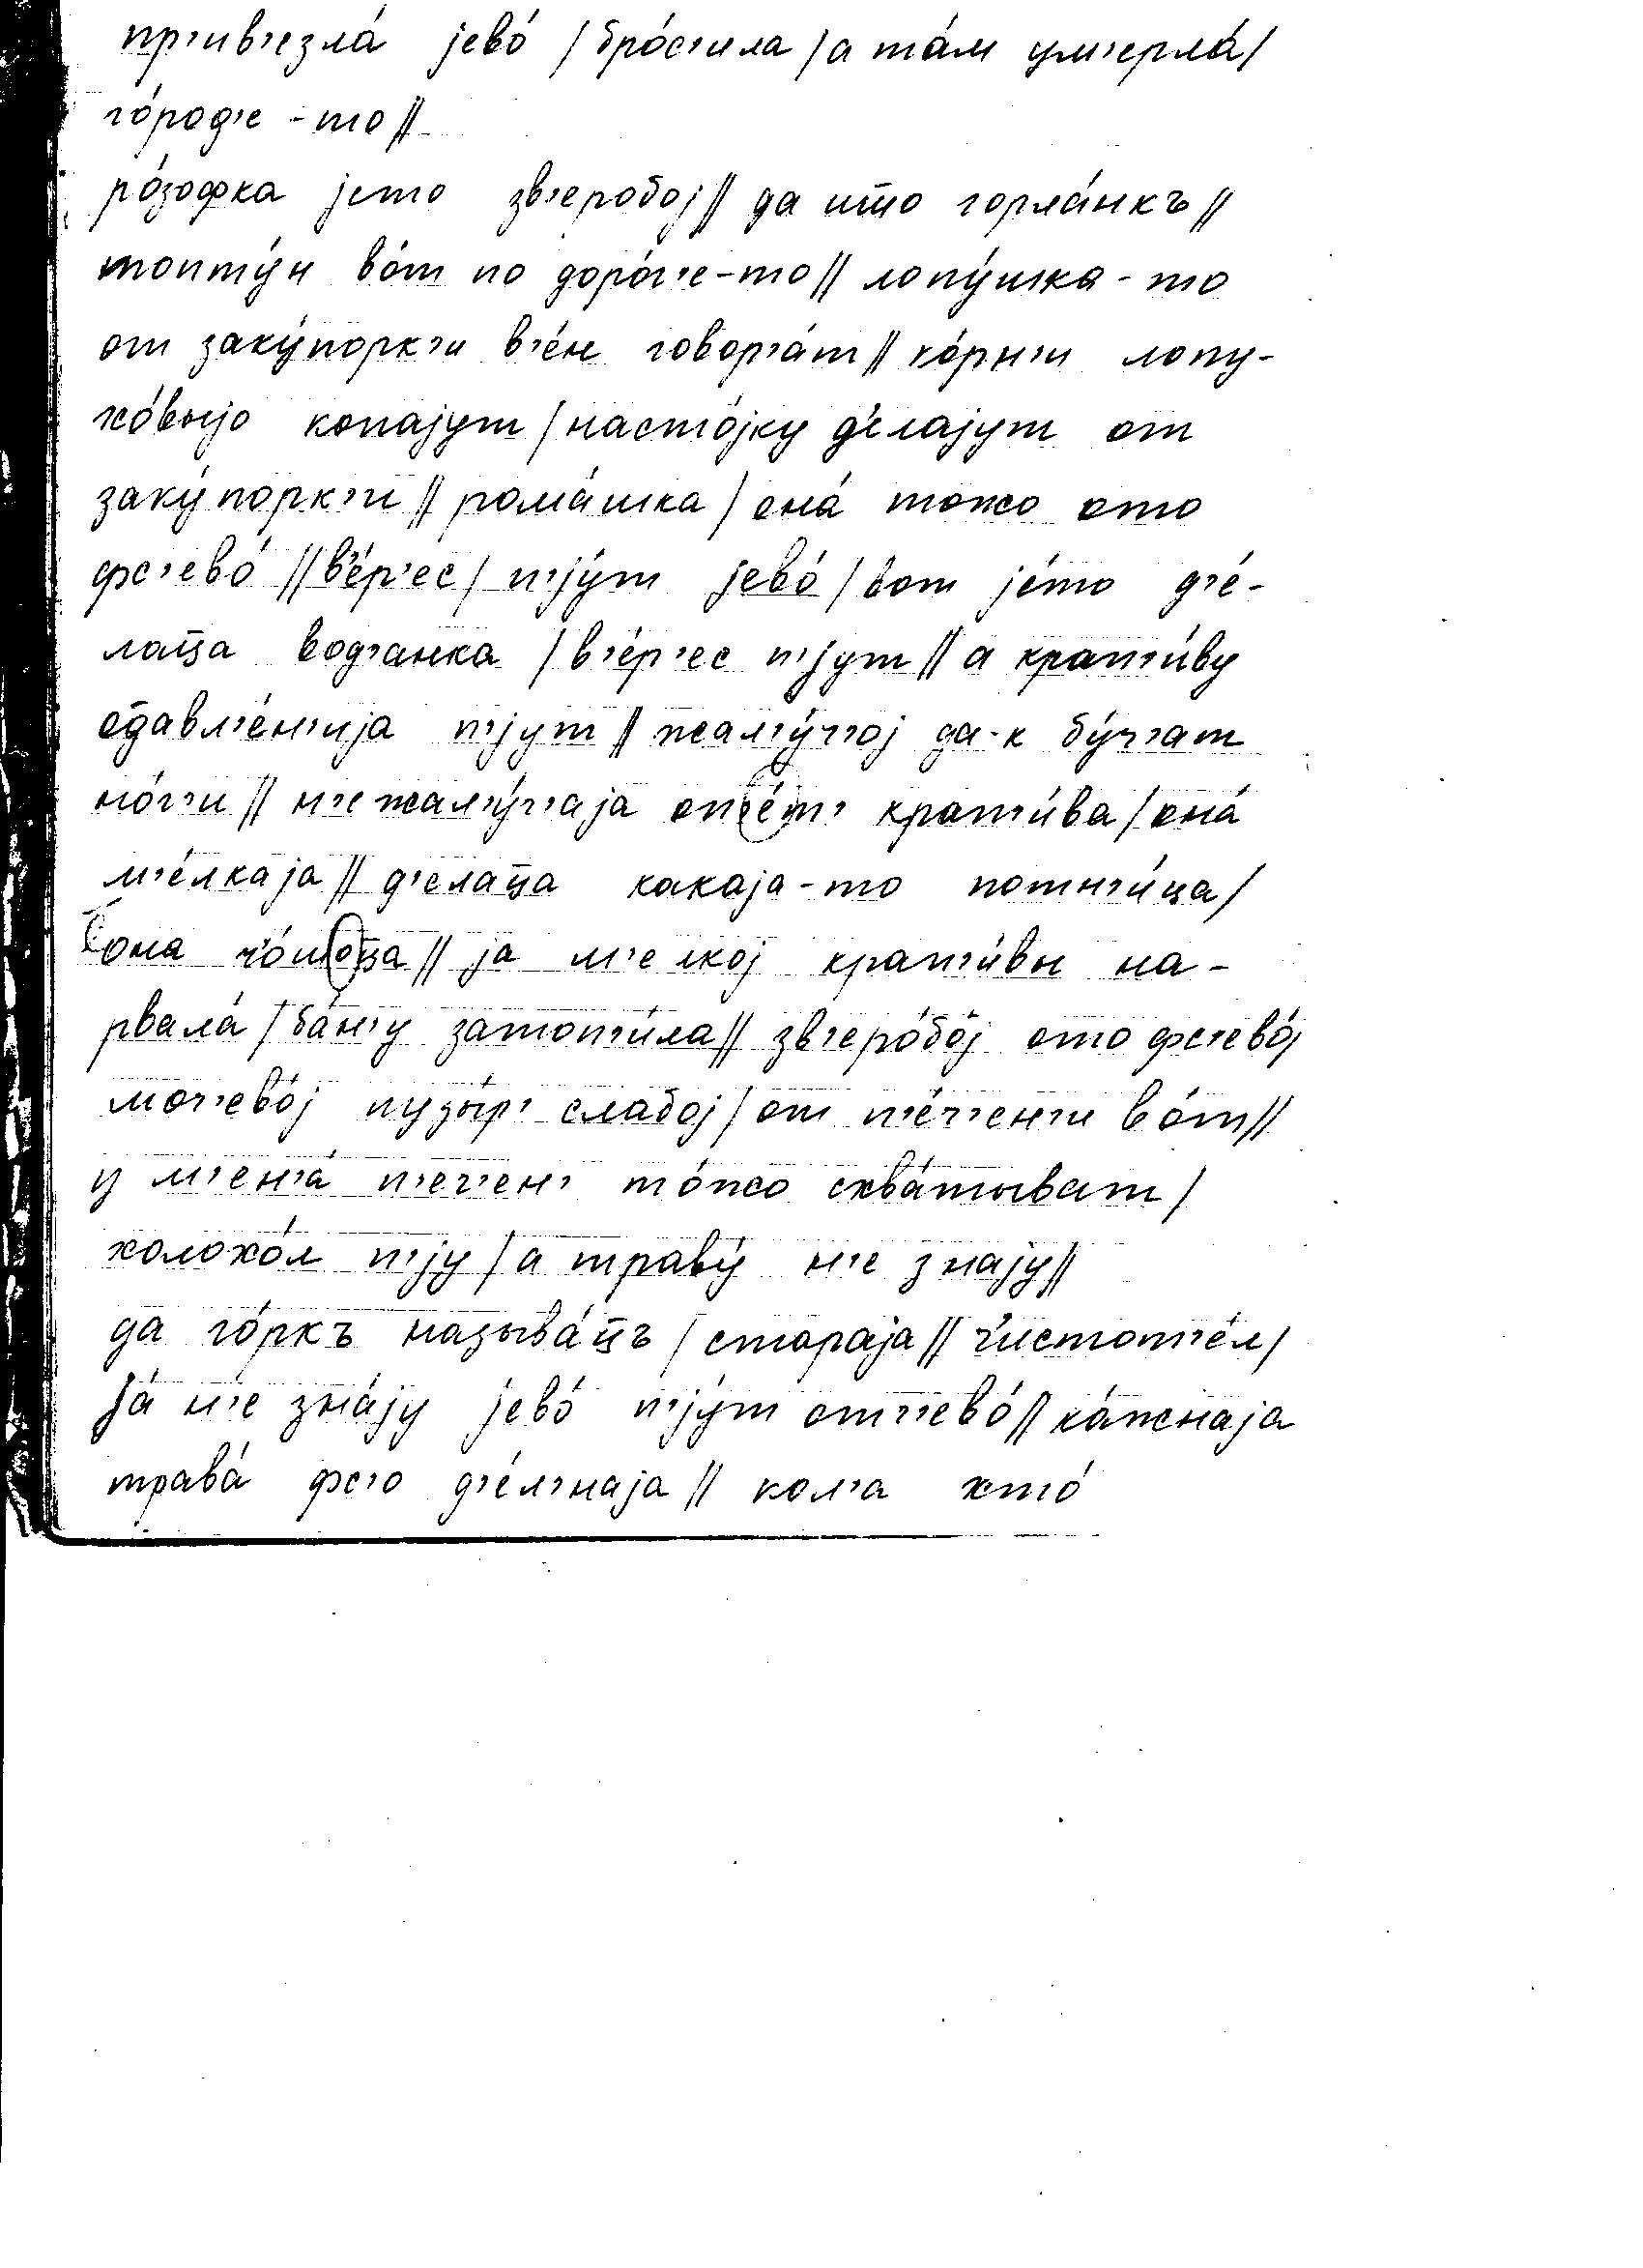 пр'ив'езла́ јево́ / бро́с'ила / а та́м ум'ерла́ /
го́род'е - то //
ро́зофка јето зв'еробој // да што горла́нкъ //
топту́н во́т по доро́г'е - то // лопу́шка - то
от заку́порк'и в'е́н говор'а́т // ко́рн'и лопу-
хо́выјо копајут / насто́јку д'е́лајут от
заку́порк'и // рома́шка / она́ тожо ото
фс'ево́ // в'е́р'ес / п'ју́т јево́ / вот је́то д'е́-
лаца вод'анка / в'е́р'ес п'јут // а крап'и́ву
одавл'е́н'ија п'јут // жал'у́ч'ој да-к бу́ч'ат
но́г'и // н'е жал'у́ч'аја оп'е́т' крап'и́ва / она́
м'е́лкаја // д'елаца какаја - то потн'и́ца /
она ч'о́шоца // ја м'елкој крап'и́вы на-
рвала́ / ба́н'у затоп'и́ла // зв'еро́бо́ј ото фс'ево́ /
моч'ево́ј пузы́р' слабој / от п'е́ч'ен'и во́т //
у м'ен'а́ п'еч'ен' то́жо схва́тыват /
холохо́л п'ју / а траву́ н'е знају //
да го́ркъ называ́цъ / стараја // ч'истот'е́л /
ја́ н'е зна́ју јево́ п'ју́т отч'ево́ // ка́жнаја
трава́ фс'о д'е́л'наја // кол'а хто́